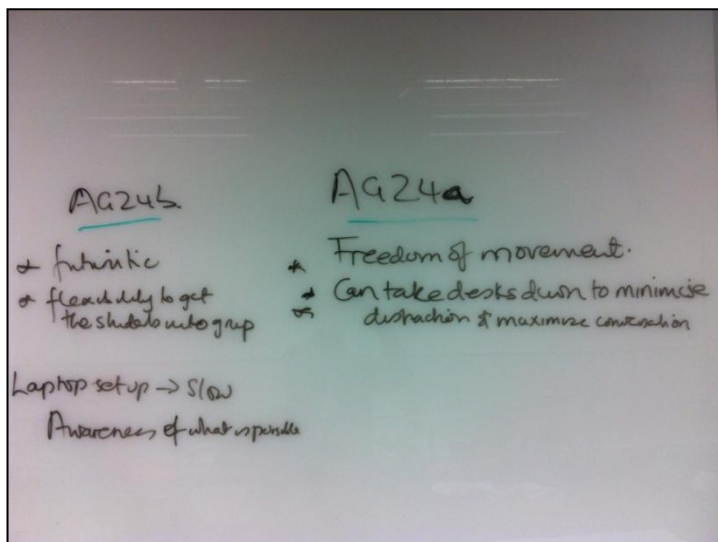 AG24b.
* futuristic
* flexibility to get
the students into group
Laptop set up → Slow
Awareness of what is possible
AG24a
* Freedom of movement.
* Can take desks down to minimise
distraction & maximise conversation